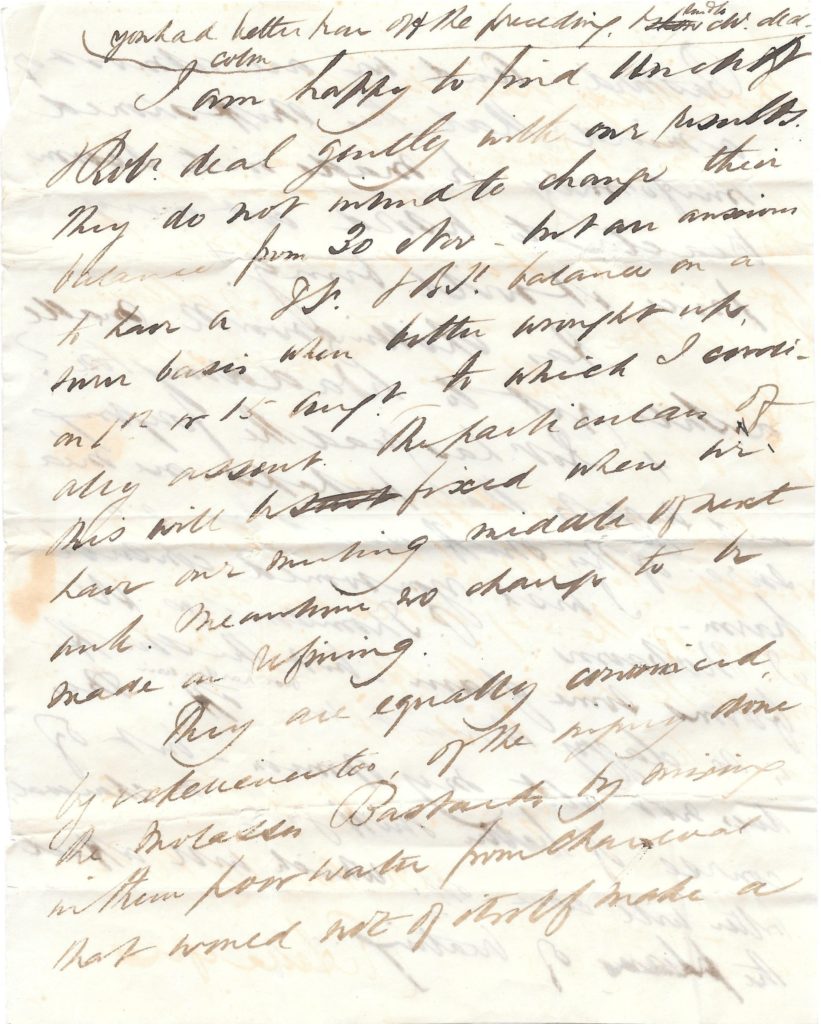 you had better tear off the preceding,
I am happy to find Uncle &
Robt. deal gently with our results.
They do not intend to change their
balance from 30 Nov - but are anxious
to have a balance on a
surer basis when better wrought up,
on 1st or 15 augt. to which I cordi-
ally assent. The particulars of
this will be fixed when we
have our meeting middle of next
week. Meantime no change to be
made in refining.
They are equally convinced,
by experience too, of the injury done
the Molasses Bastards by mixing
in them poor water from charcoal
that would not of itself made a